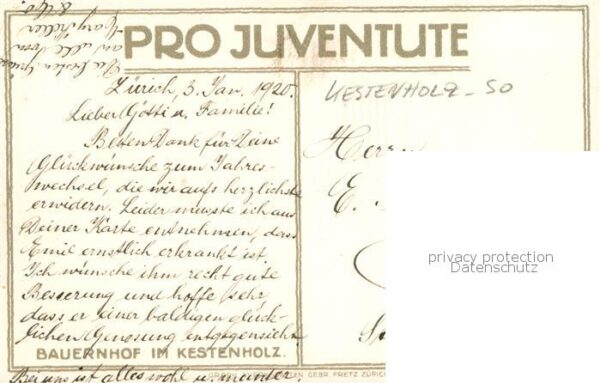 PRO JUVENTUTE
Zürich, 3. Jan. 1920.
Lieber Götti u. Familie!
Besten Dank für Deine
Glückwünsche zum Jahres-
wechsel, die wir aufs herzlichste
erwidern. Leider musste ich aus
Deiner Karte entnehmen, dass
Emil ernstlich erkrankt ist.
Ich wünsche ihm recht gute
Besserung und hoffe sehr,
dass er einer baldigen glück-
lichen Genesung entgegensieht.
BAUERNHOF IM KESTENHOLZ.
Bei uns ist alles wohl u. munter.
Die besten Grüsse
an alle von
KESTENHOLZ - SO
Herrn
E.
privacy protection
Datenschutz
GEBR. FRETZ ZÜRICH